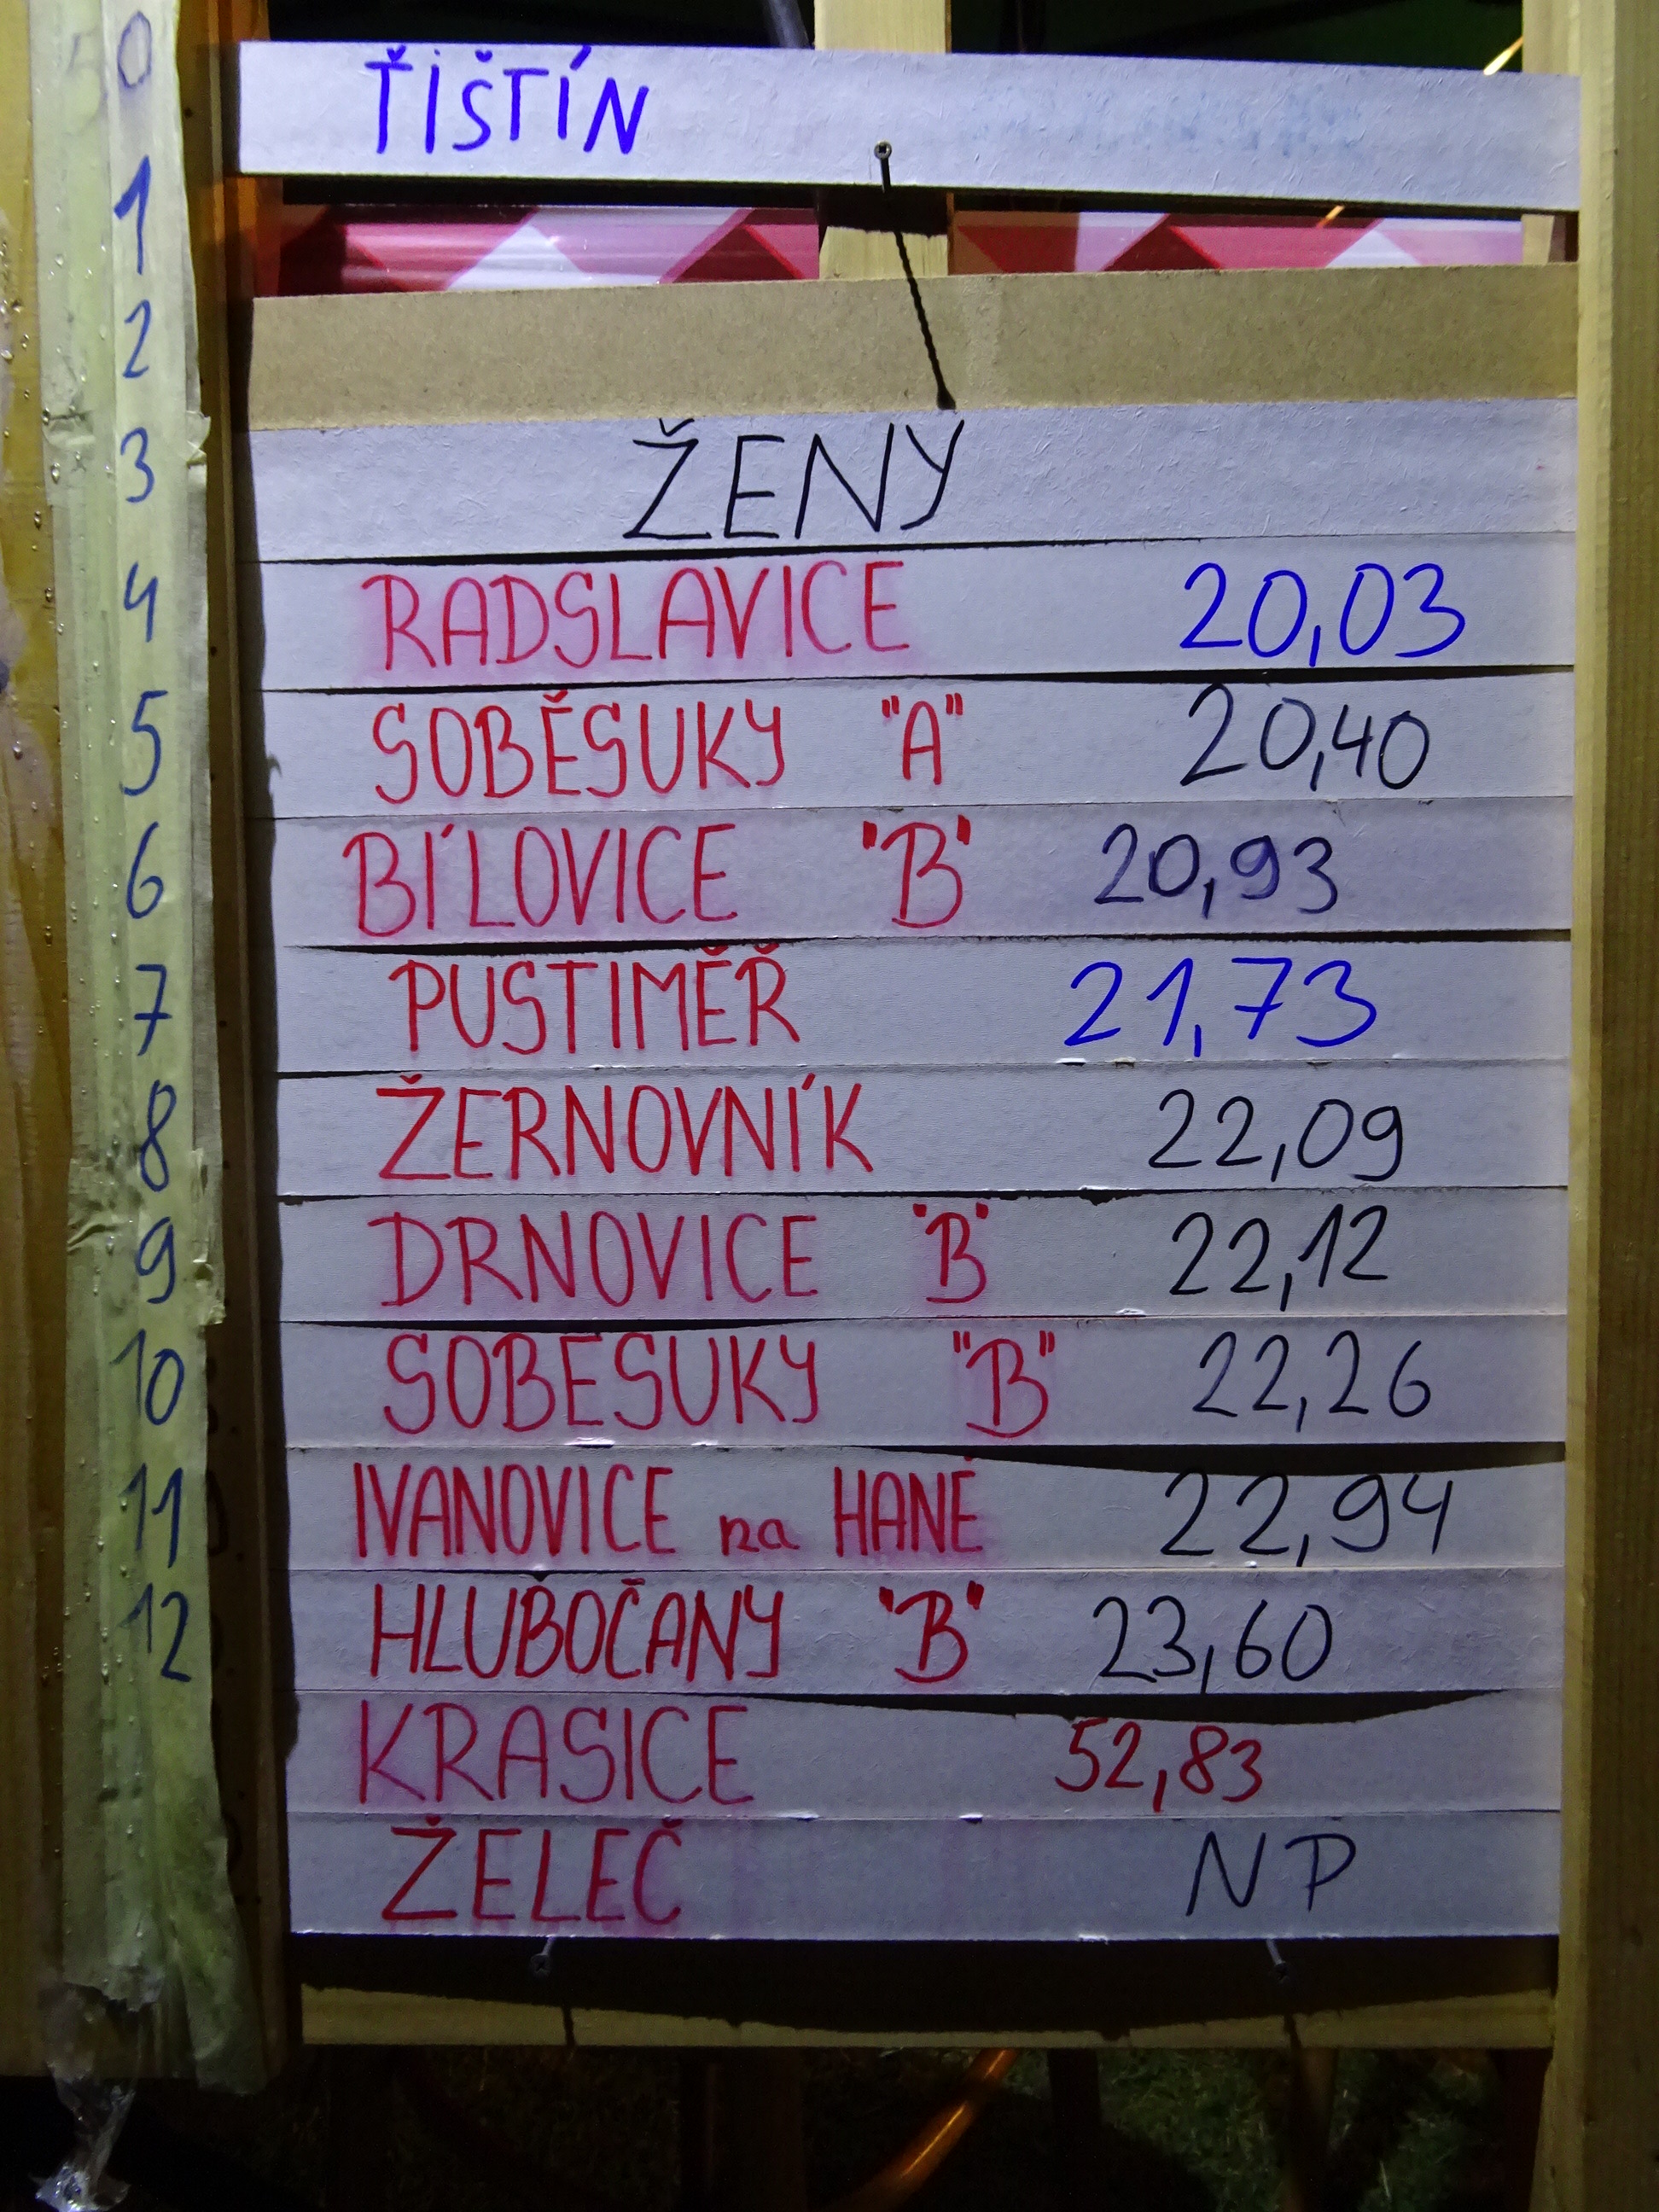 0
ŤIŠTÍN
1
2
3
ŽENY
4
RADSLAVICE 20,03
5
SOBĚSUKY "A" 20,40
6
BÍLOVICE "B" 20,93
7
PUSTIMĚŘ 21,73
8
ŽERNOVNÍK 22,09
9
DRNOVICE "B" 22,12
10
SOBESUKY "B" 22,26
11
IVANOVICE na HANÉ 22,94
12
HLUBOČANY "B" 23,60
KRASICE 52,83
ŽELEČ NP